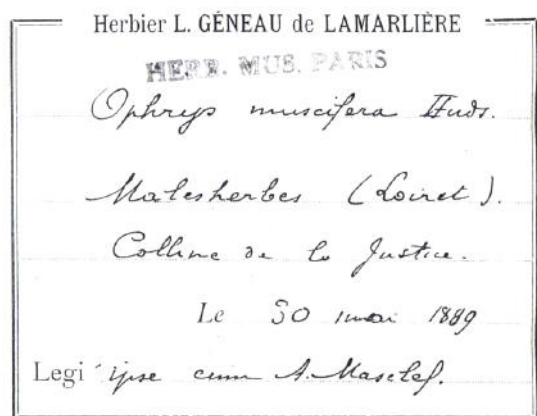 Herbier L. GÉNEAU de LAMARLIÈRE
HERB. MUS. PARIS
Ophrys muscifera Huds.
Malesherbes (Loiret).
Colline de la Justice.
Le 30 mai 1889
Legi ipse cum A. Masclef.